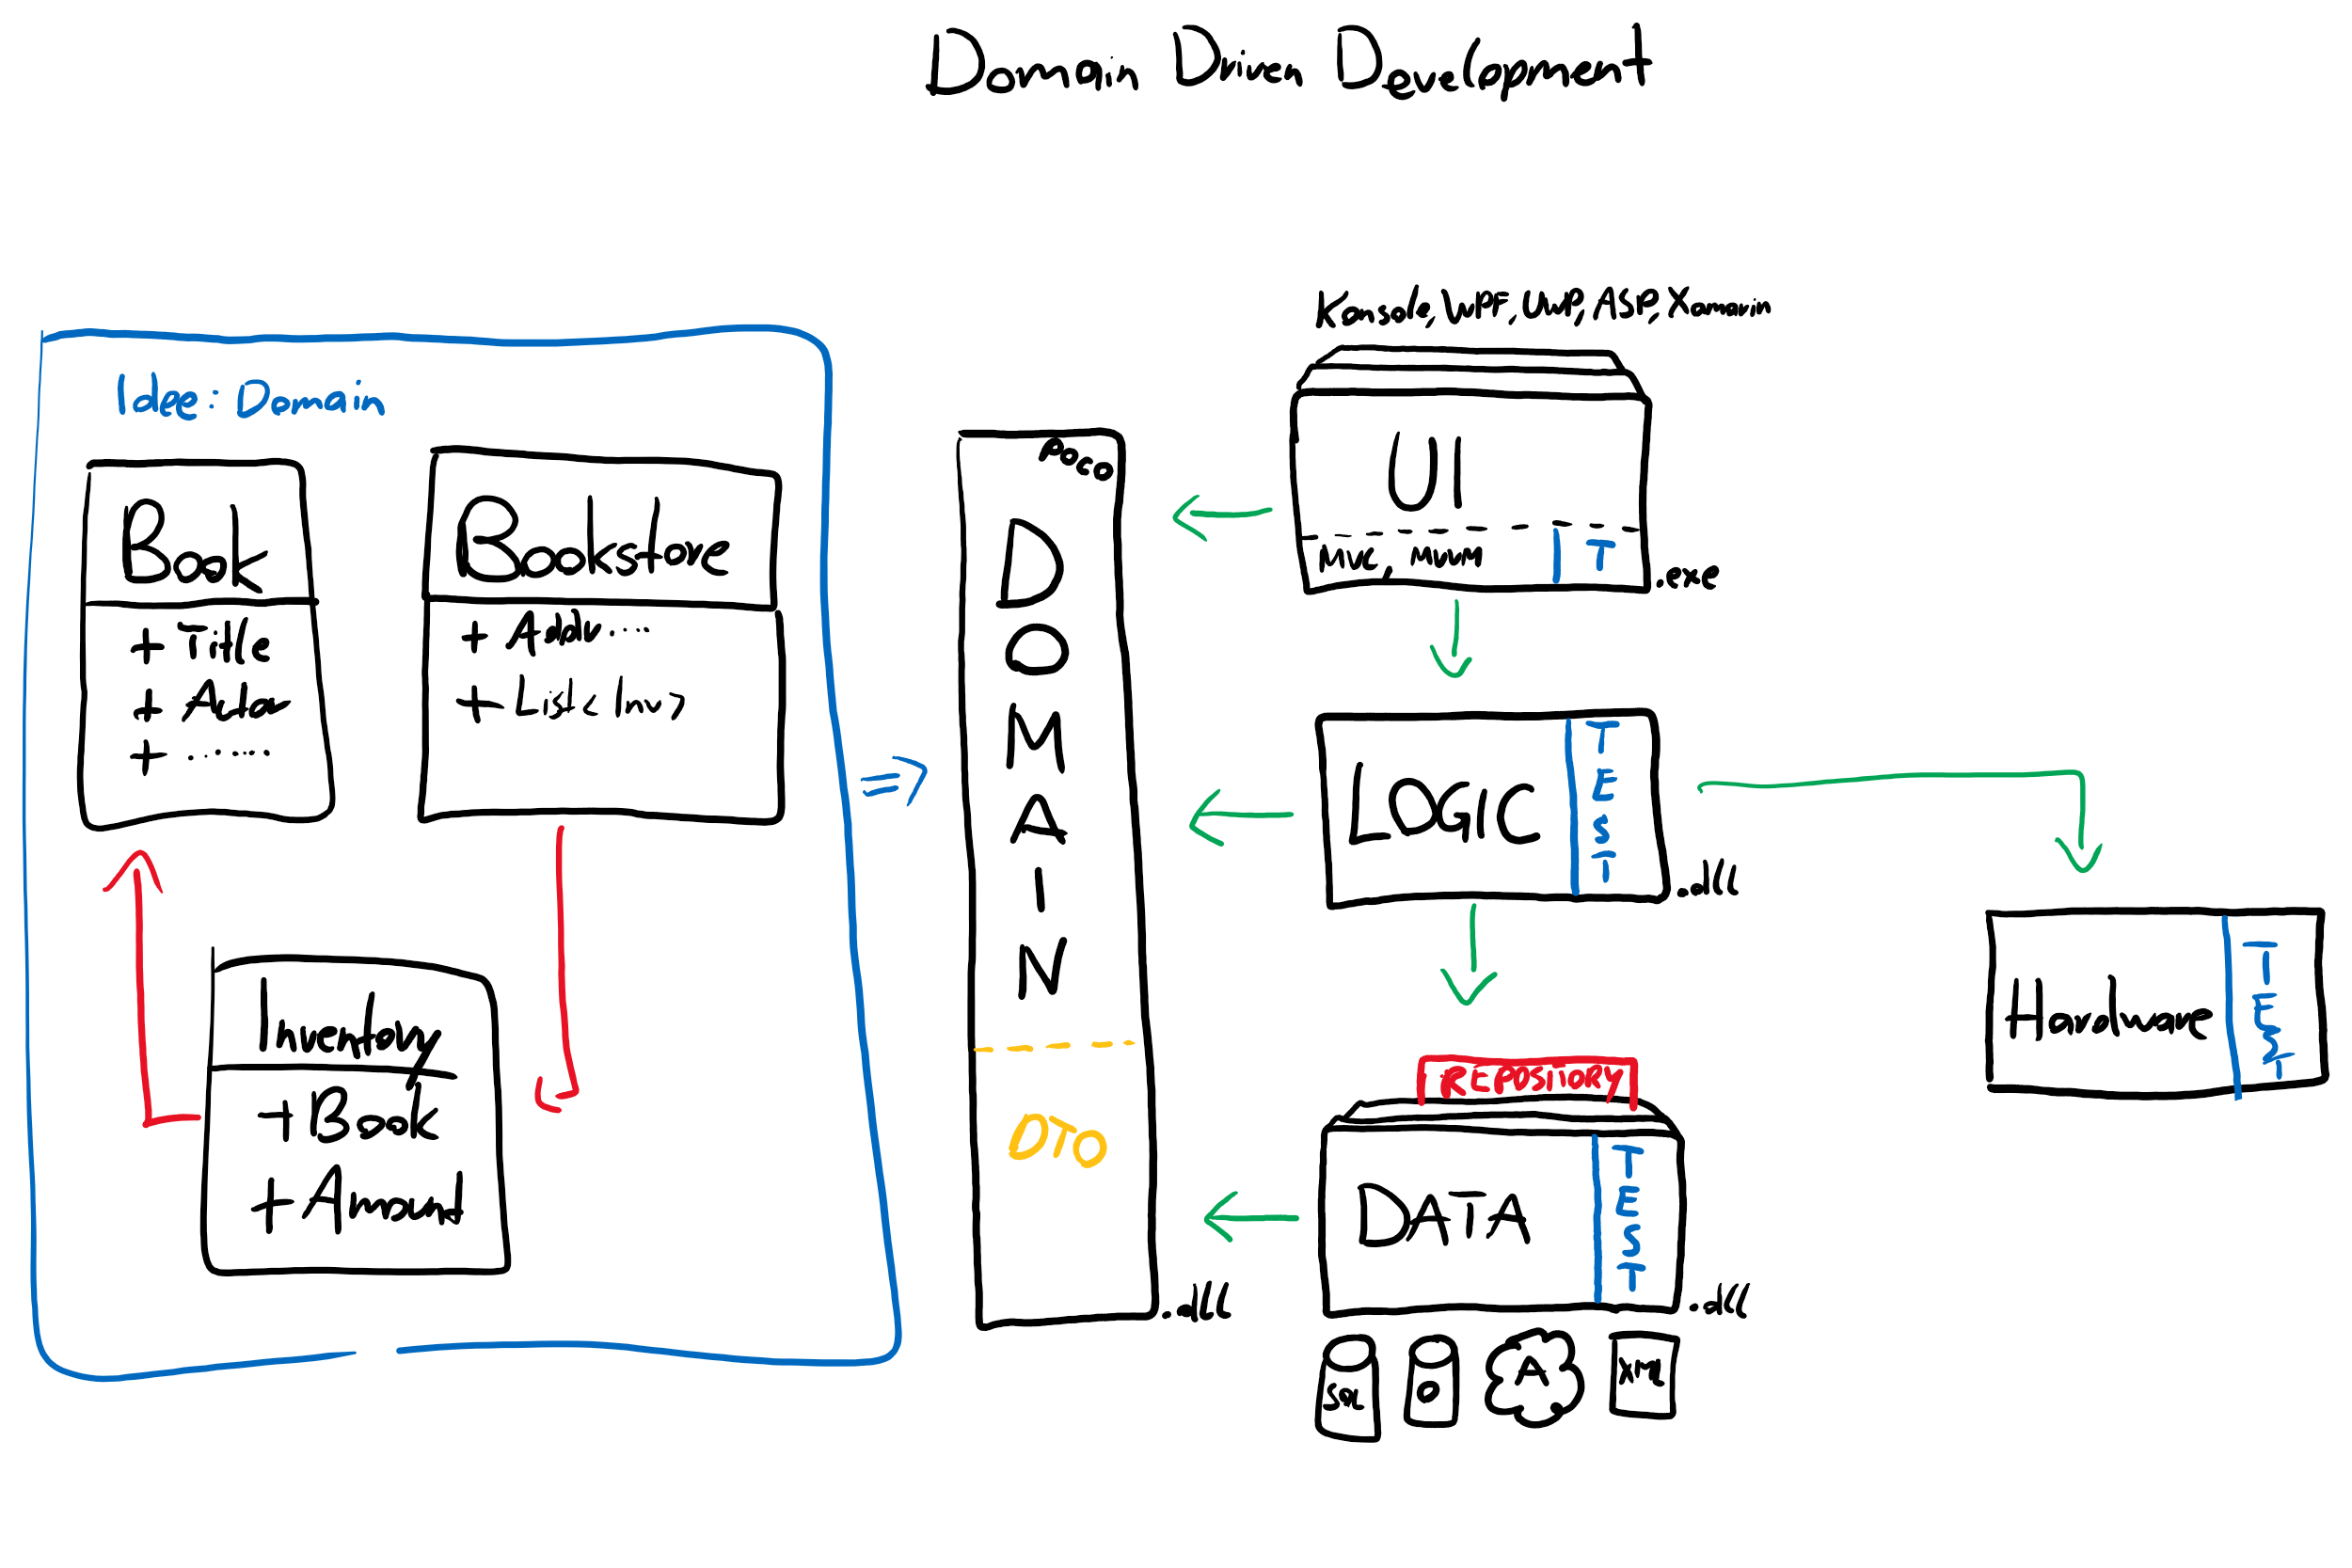 Domain Driven Development
Idee: Domain
Book
+ Title
+
+ .......
Bookstore
+ Addr....
+ List<Inv>
Inventory
+Book
+Amount
POCO
DOMAIN
DTO
.dll
Konsole, WPF, UWP, ASP, Xamarin
UI
MVC, MVVM
T
.exe
LOGIC
TEST
.dll
Hardware
TEST
REPOSITORY
DATA
TEST
.dll
SQL
O
A
XML